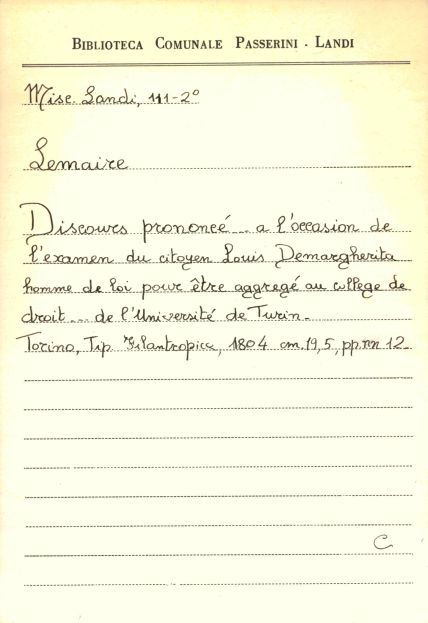 BIBLIOTECA COMUNALE PASSERINI - LANDI
Misc. Landi, 111-2°
Lemaire
Discours prononcé... a l'occasion de
l'examen du citoyen Louis Demargherita
homme de loi pour être aggregé au college de
droit ... de l'Université de Turin.
Torino, Tip. Filantropica, 1804 cm. 19,5, pp.nn 12.
C